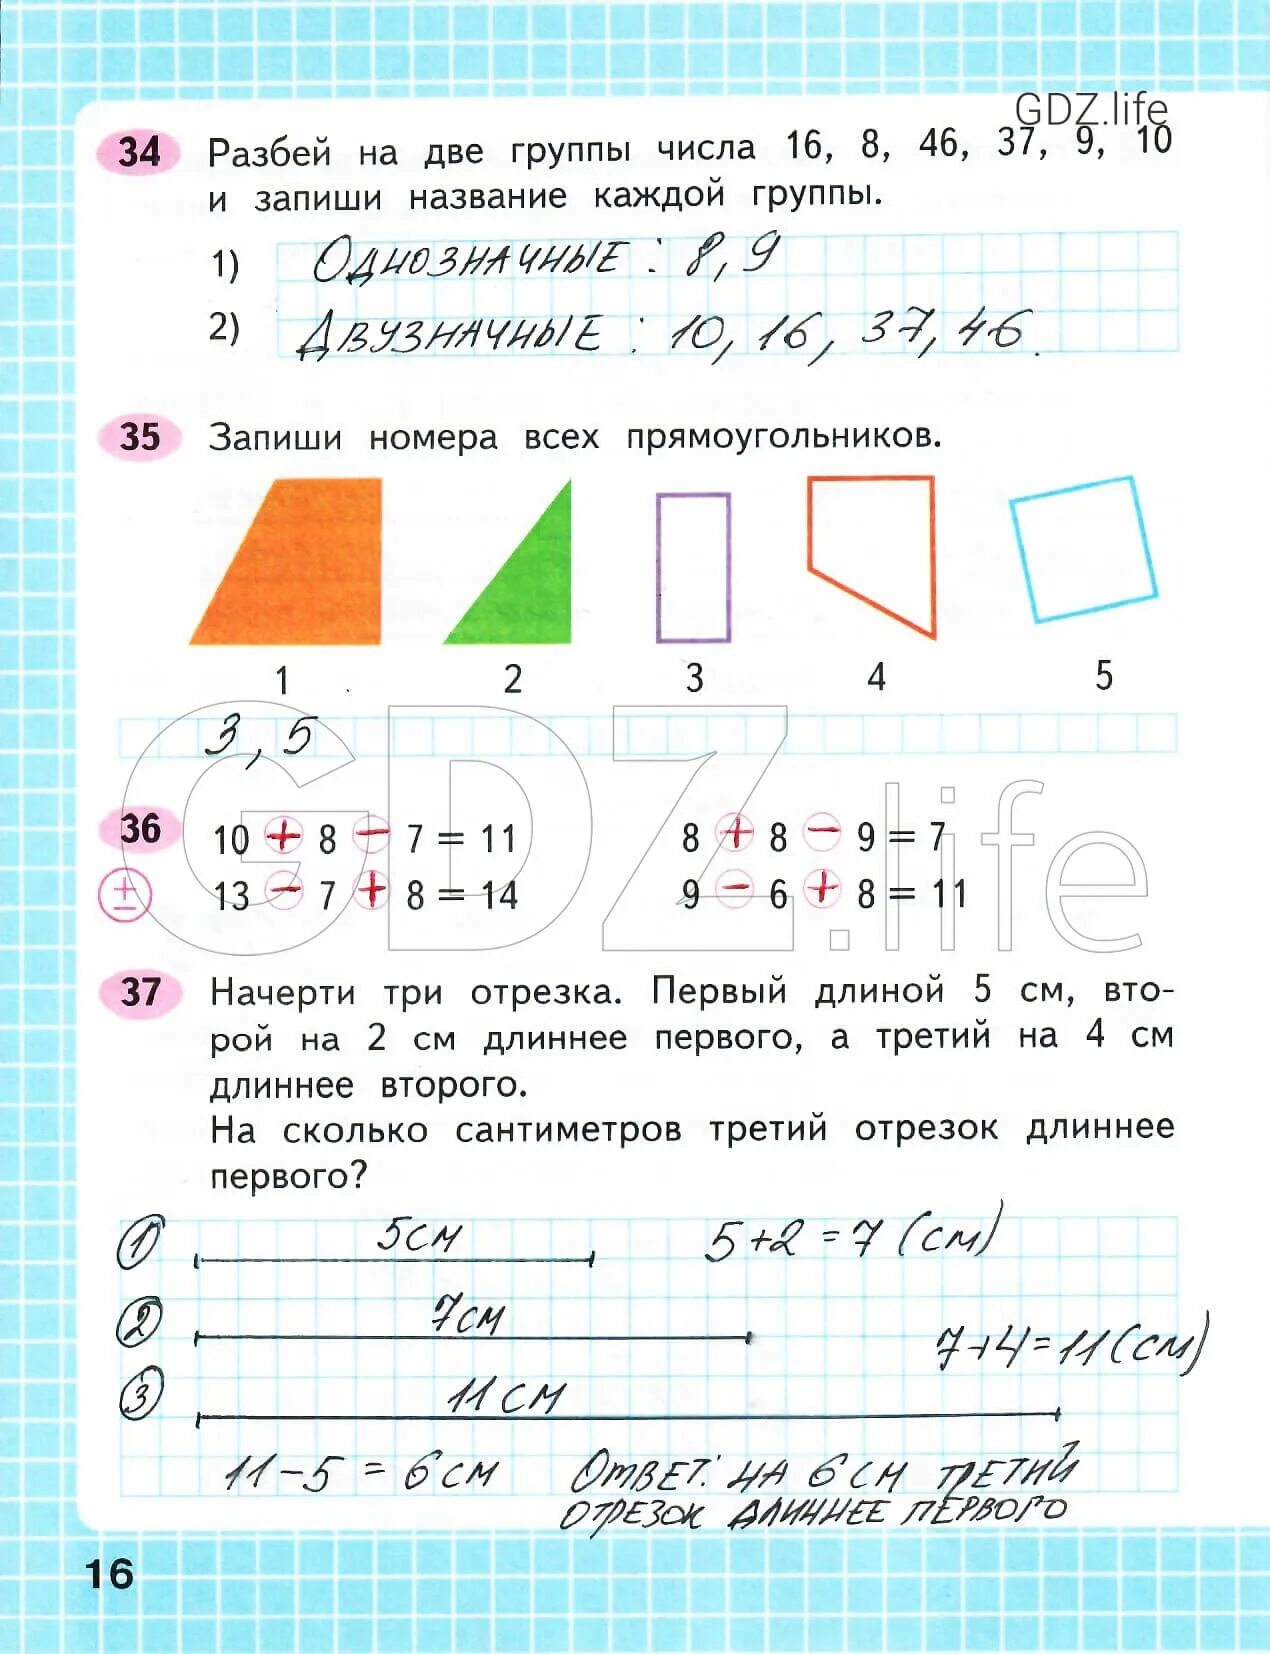 GDZ.life
34 Разбей на две группы числа 16, 8, 46, 37, 9, 10
и запиши название каждой группы.
1) Однозначные : 8, 9
2) Двузначные : 10, 16, 37, 46.
35 Запиши номера всех прямоугольников.
1 2 3 4 5
3, 5
GDZ.life
36 10 + 8 − 7 = 11 8 + 8 − 9 = 7
± 13 − 7 + 8 = 14 9 − 6 + 8 = 11
37 Начерти три отрезка. Первый длиной 5 см, вто-
рой на 2 см длиннее первого, а третий на 4 см
длиннее второго.
На сколько сантиметров третий отрезок длиннее
первого?
1 5см 5+2=7 (см)
2 7см
7+4=11(см)
3 11см
11−5=6см Ответ: на 6 см третий
отрезок длиннее первого
16